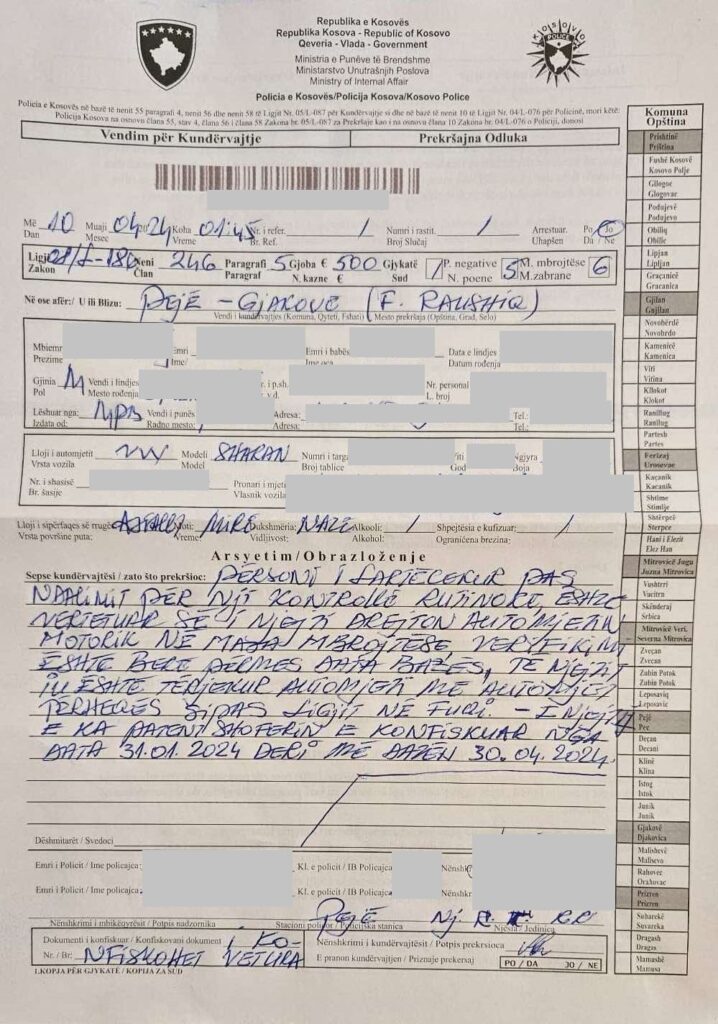 Republika e Kosovës
Republika Kosova - Republic of Kosovo
Qeveria - Vlada - Government
Ministria e Punëve të Brendshme
Ministarstvo Unutrašnjih Poslova
Ministry of Internal Affair
Policia e Kosovës/Policija Kosova/Kosovo Police
KOSOVO
POLICE
Policia e Kosovës në bazë të nenit 55 paragrafi 4, nenit 56 dhe nenit 58 të Ligjit Nr. 05/L-087 për Kundërvajtje si dhe në bazë të nenit 10 të Ligjit Nr. 04/L-076 për Policinë, mori këtë:
Policija Kosova na osnovu člana 55, stav 4, člana 56 i člana 58 Zakona br. 05/L-087 za Prekršaje kao i na osnovu člana 10 Zakona br. 04/L-076 o Policiji, donosi
Vendim për Kundërvajtje Prekršajna Odluka
Më 10 Muaji 04.24 Koha 01:45 Nr. i refer. / Numri i rastit. / Arrestuar. Po / Jo
Dan Mesec Vreme Br. Ref. Broj Slučaj Uhapšen Da / Ne
Ligji 08/L-186 Neni 246 Paragrafi 5 Gjoba € 500 Gjykatë / P. negative 5 M. mbrojtëse 6
Zakon Član Paragraf N. kazne € Sud N. poene M. zabrane
Në ose afër:/ U ili Blizu: PEJË - GJAKOVË (F. RAUSHIQ)
Vendi i kundërvajtjes (Komuna, Qyteti, Fshati) / Mesto prekršaja (Opština, Grad, Selo)
Mbiemr Emri Emri i babës Data e lindjes
Prezime Ime Datum rođenja
Gjinia M Vendi i lindjes Nr. personal
Pol Mesto rođenja L. broj
Lëshuar nga: MPB Vendi i punës Adresa: Tel.:
Izdata od: Radno mesto: Adresa: Tel.:
Lloji i automjetit VW Modeli SHARAN Numri i targa Ngjyra
Vrsta vozila Model Broj tablice God Boja
Nr. i shasisë Pronari i mjetit
Br. šasije Vlasnik vozila
Lloji i sipërfaqes së rrugës ASFALLT MIRË Dukshmëria: NATË Alkooli: / Shpejtësia e kufizuar: /
Vrsta površine puta: Vreme: Vidljivost: Alkohol: Ograničena brezina:
Arsyetim/Obrazloženje
Sepse kundërvajtësi / zato što prekršioc: PERSONI I LARTËCEKUR PAS
NDALIMIT PËR NJË KONTROLLË RUTINORE, ËSHTË
VËRTETUAR SE I NJEJTI DREJTON AUTOMJETIN
MOTORIK NË MASA MBROJTËSE, VERIFIKIMI
ËSHTË BËRË PËRMES DATA BAZËS, TË NJEJTIT
IU ËSHTË TËRHJEKUR AUTOMJETI ME AUTOMJET
TËRHEQËS SIPAS LIGJIT NË FUQI. - I NJEJTI
E KA PATENT SHOFERIN E KONFISKUAR NGA
DATA 31.01.2024 DERI MË DATËN 30.04.2024.
Dëshmitarët / Svedoci
Emri i Policit / Ime policajca: Kl. e policit / IB Policajca Nënshk
Emri i Policit / Ime policajca: Kl. e policit / IB Policajca Nënshkr
PEJË Nj.
Nënshkrimi i mbikëqyrësit / Potpis nadzornika Stacioni policor / Policijska stanica Njësia / Jedinica
Dokumenti i konfiskuar / Konfiskovani dokument KO-
Nr. / Br: NFISKOHET VETURA
Nënshkrimi i kundërvajtësit / Potpis prekrsioca
E pranon kundërvajtjen / Priznaje prekersaj PO / DA JO / NE
1.KOPJA PËR GJYKATË / KOPIJA ZA SUD
Komuna
Opština
Prishtinë
Priština
Fushë Kosovë
Kosovo Polje
Gllogoc
Glogovac
Podujevë
Podujevo
Obiliq
Obilic
Lipjan
Lipljan
Graçanicë
Gracanica
Gjilan
Gnjilan
Novobërdë
Novobrdo
Kamenicë
Kamenica
Viti
Vitina
Kllokot
Klokot
Ranillug
Ranilug
Partesh
Partes
Ferizaj
Urosevac
Kaçanik
Kacanik
Shtime
Stimlje
Shtërpcë
Sterpce
Hani i Elezit
Elez Han
Mitrovicë Jugu
Juzna Mitrovica
Vushtrri
Vucitrn
Skënderaj
Srbica
Mitrovicë Veri,
Severna Mitrovica
Zveçan
Zvecan
Zubin Potok
Zubin Potok
Leposaviq
Leposavic
Pejë
Pec
Deçan
Decani
Klinë
Klina
Istog
Istok
Junik
Junik
Gjakovë
Djakovica
Malishevë
Malisevo
Rahovec
Orahovac
Prizren
Prizren
Suharekë
Suvareka
Dragash
Dragas
Mamushë
Mamusa